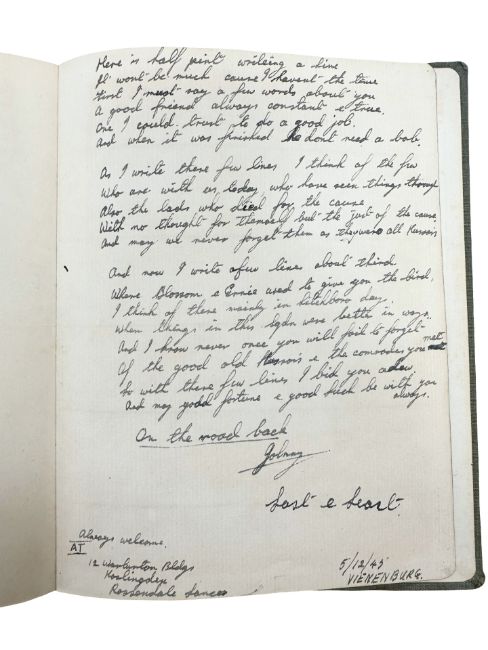 Here is half pint writing a line
It wont be much cause I havent the time
First I must say a few words about you
A good friend always constant & true.
One I could trust to do a good job
And when it was finished he dont need a bob.
As I write these few lines I think of the few
Who are with us today, who have seen things through
Also the lads who died for the cause
With no thought for themself but the just of the cause
And may we never forget them as they were all
And now I write a few lines about third
Where Blossom & Ernie used to give you the bird,
I think of these mainly in day.
When things in this Sqdn were better in ways.
And I know never once you will fail to forget
Of the good old & the comrades you met
So with these few lines I bid you adew.
And may good fortune & good luck be with you
always.
On the road back
Last & Least.
Always welcome.
AT
12 Warburton Bldgs
Haslingden
Rossendale Lancs
5/12/45
VIENENBURG.